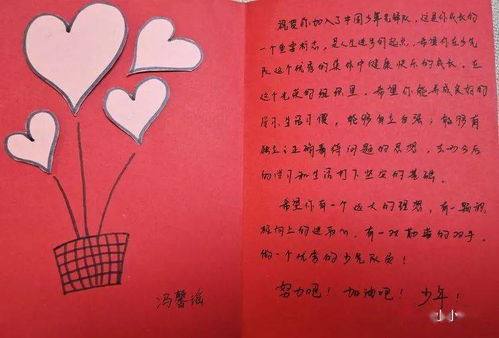 冯馨瑶
祝贺你加入了中国少年先锋队，这是你成长的
一个重要标志，是人生进步的起点，希望你在少先
队这个优秀的集体中健康快乐的成长。在
这个光荣的组织里，希望你能养成良好的
学习生活习惯，能够自立自强；能够有
独立、正确看待问题的思想，去为今后
的学习和生活打下坚实的基础。
希望你有一个远大的理想，有一颗积
极向上的进取心，有一双勤劳的双手，
做一个优秀的少先队员！
努力吧！加油吧！少年！